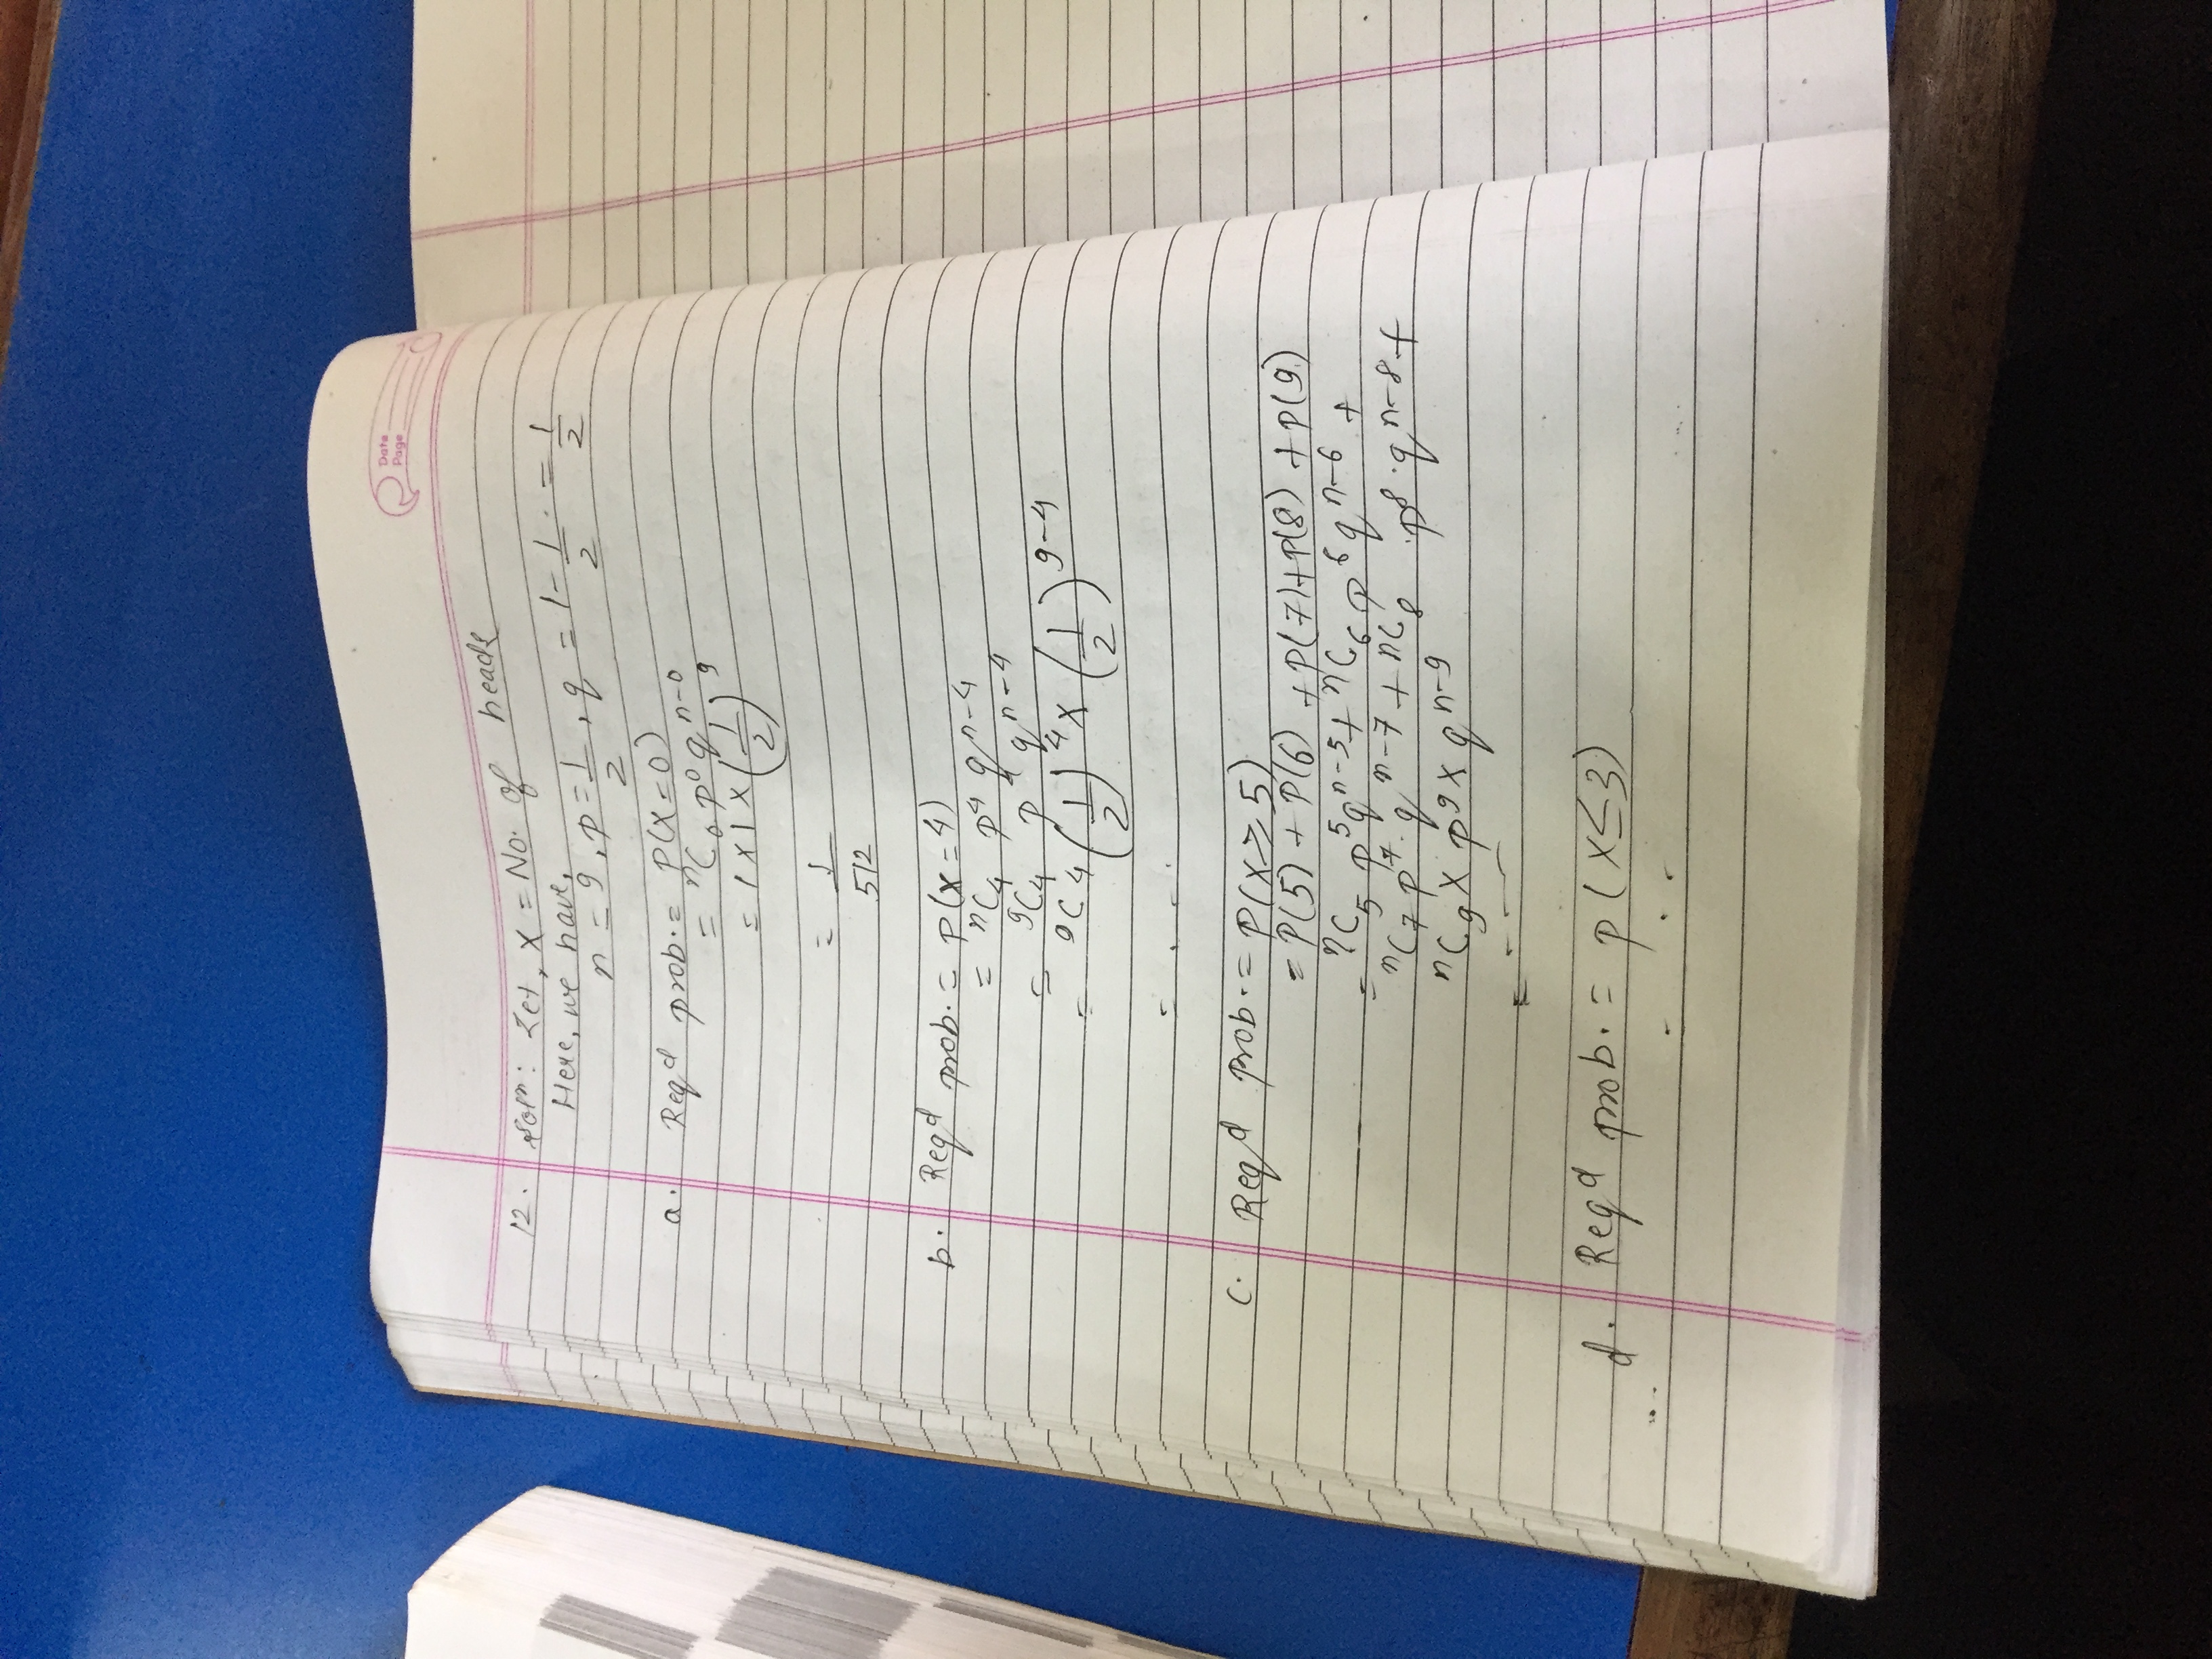 Date
Page
12. Solⁿ: Let, X = No. of heads
Here, we have,
n = 9, p = 1/2, q = 1 - 1/2 = 1/2
a. Reqᵈ prob. = P(X=0)
= ⁿC₀ p⁰ qⁿ⁻⁰
= 1 x 1 x (1/2)⁹
= 1/512
b. Reqᵈ prob. = P(X = 4)
= ⁿC₄ p⁴ qⁿ⁻⁴
= ⁹C₄ p⁴ qⁿ⁻⁴
= ⁹C₄ (1/2)⁴ x (1/2)⁹⁻⁴
= . - .
c. Reqᵈ prob. = P(X ≥ 5)
= P(5) + P(6) + P(7) + P(8) + P(9)
= ⁿC₅ p⁵ qⁿ⁻⁵ + ⁿC₆ p⁶ qⁿ⁻⁶ +
ⁿC₇ p⁷. qⁿ⁻⁷ + ⁿC₈ .p⁸. qⁿ⁻⁸ +
ⁿC₉ x p⁹ x qⁿ⁻⁹
= - - —
d. Reqᵈ prob. = P(X ≤ 3)
- . -